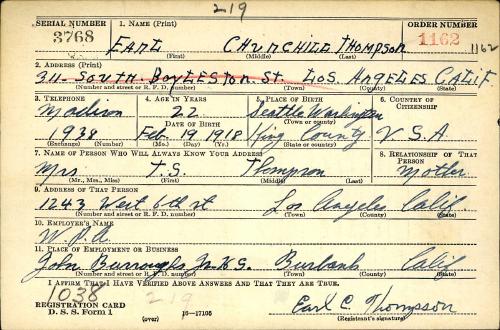 219
SERIAL NUMBER 1. NAME (Print) ORDER NUMBER
3768 EARL CHURCHILL THOMPSON 1162 1162
(First) (Middle) (Last)
2. ADDRESS (Print)
311- SOUTH. BOYLESTON. ST. LOS ANGELES CALIF
(Number and street or R. F. D. number) (Town) (County) (State)
3. TELEPHONE 4. AGE IN YEARS 5. PLACE OF BIRTH 6. COUNTRY OF CITIZENSHIP
Madison 22 Seattle Washington
DATE OF BIRTH (Town or county)
1938 Feb. 19, 1918 King County U.S.A
(Exchange) (Number) (Mo.) (Day) (Yr.) (State or country)
7. NAME OF PERSON WHO WILL ALWAYS KNOW YOUR ADDRESS 8. RELATIONSHIP OF THAT PERSON
Mrs T.S. Thompson Mother
(Mr., Mrs., Miss) (First) (Middle) (Last)
9. ADDRESS OF THAT PERSON
1243 West 6th st Los Angeles Calif.
(Number and street or R. F. D. number) (Town) (County) (State)
10. EMPLOYER'S NAME
W.P.A.
11. PLACE OF EMPLOYMENT OR BUSINESS
John Burroughs Jr. H.S. Burbank Calif
(Number and street or R. F. D. number) (Town) (County) (State)
I AFFIRM THAT I HAVE VERIFIED ABOVE ANSWERS AND THAT THEY ARE TRUE.
1038 219 Earl C Thompson
REGISTRATION CARD
D. S. S. Form 1 (over) 16—17105 (Registrant's signature)